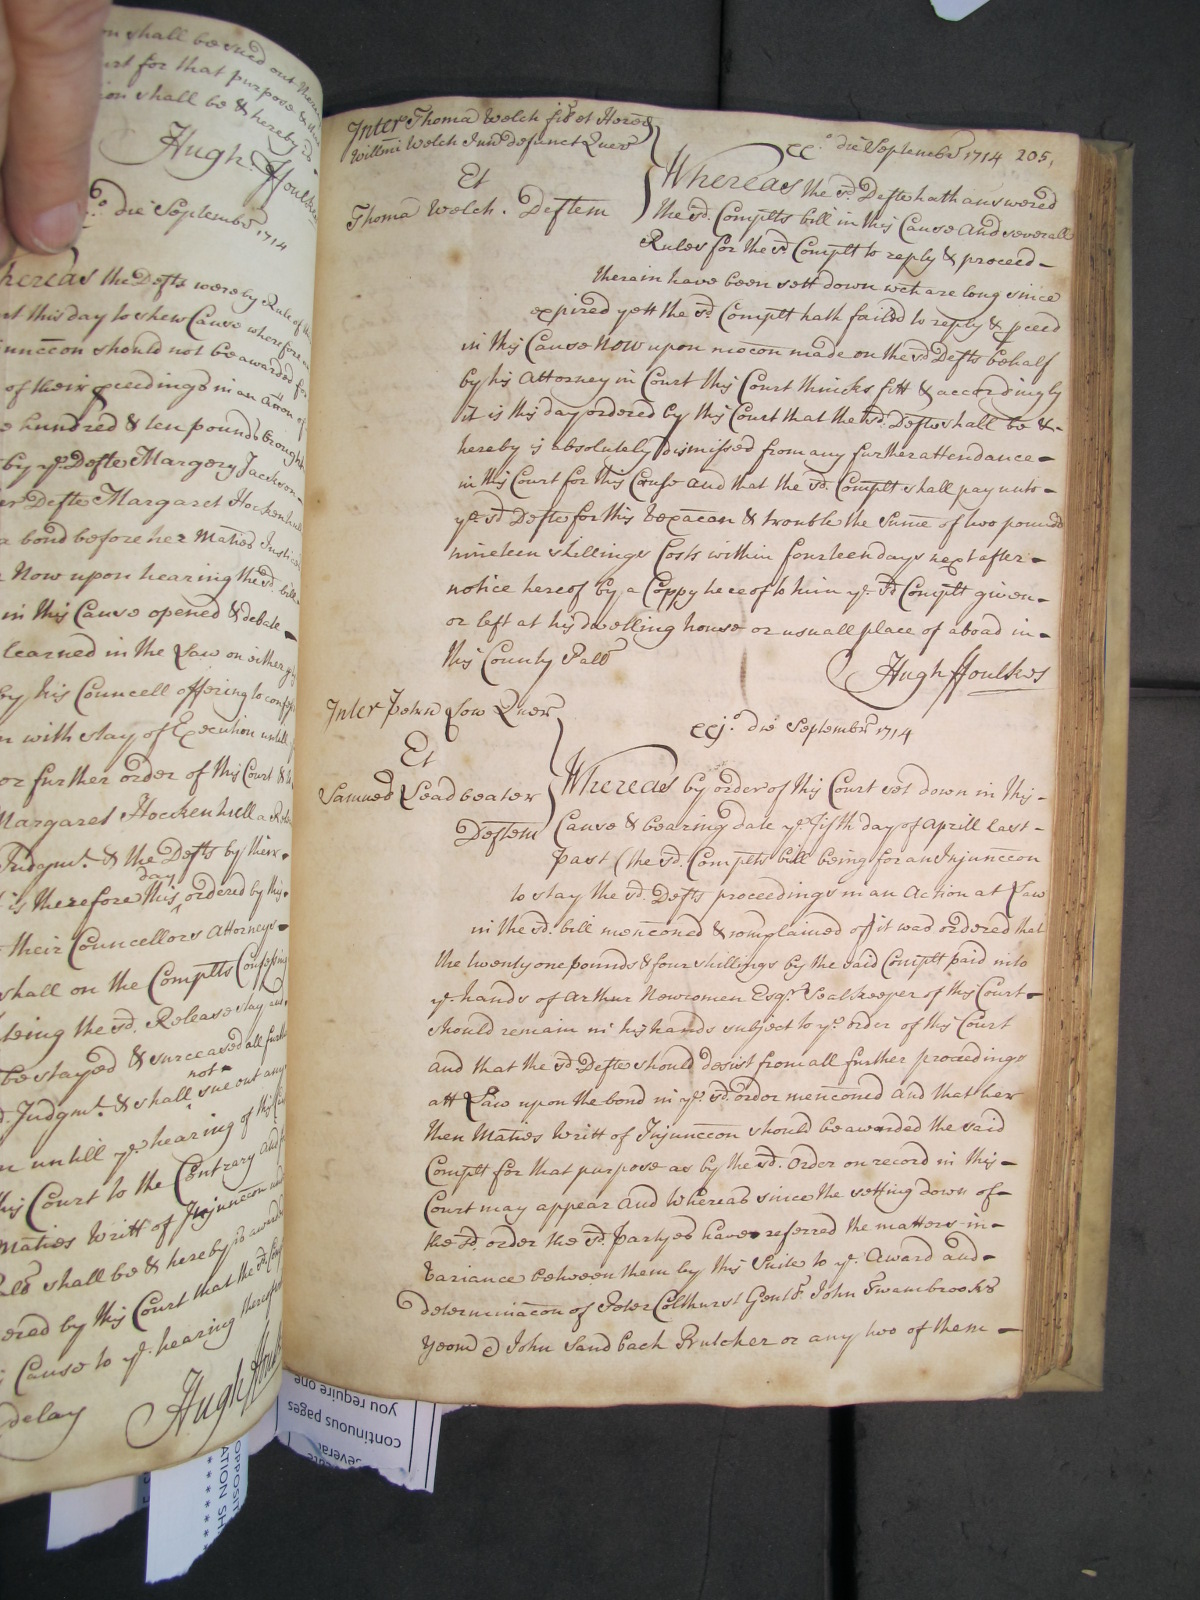 on shall be sued out
Court for that purpose &
shall be & hereby is
Hugh ffoulkes
die Septembr 1714
Whereas the Defts were by Rule of
this day to shew Cause wherefore
Injunccon should not be awarded
of their pceedings in an accon of
hundred & ten pounds brought
by ye Defte Margery Jackson
Defte Margaret Hockenhull
a bond before her Maties Justices
Now upon hearing the sd bill
in this Cause opened & debate
learned in the Law on either
by his Councell offering to confess
with stay of Execution untill
or further order of this Court &
Margaret Hockenhull a
Judgmt. & the Defts by their
day
is therefore this ordered by this
their Councellors Attorneys
shall on the Complts Confessing
the sd. Release stay
be stayed & surceased all
not
Judgmt. & shall sue out any
untill ye hearing of this
this Court to the Contrary and
Maties Writt of Injunccon
shall be & hereby is awarded
ordered by this Court that the sd
Cause to ye hearing thereupon
delay
Hugh ffoulkes
Inter Thoma Welch fil et Hered
Willmi Welch Junr defunct Quer
xx.o die Septembr 1714 205,
Et
Thoma Welch. Deftem
Whereas the sd. Defte hath answered
the sd. Complts bill in this Cause And severall
Rules for the sd Complt to reply & proceed-
therein have been sett down wch are long since
expired yett the sd. Complt hath failed to reply & pceed
in this Cause Now upon mocon made on the sd Defts behalf
by his Attorney in Court this Court thincks fitt & accordingly
it is this day ordered by this Court that the sd. Defte shall be &-
hereby is absolutely dismissed from any further attendance-
in this Court for this Cause And that the sd. Complt shall pay unto-
ye sd Defte for this vexacon & trouble the sume of two pounds
nineteen shillings Costs within fourteen days next after-
notice hereof by a Coppy hereof to him ye. sd Complt given-
or left at his dwelling house or usuall place of aboad in-
this County Pald
Hugh ffoulkes
Inter Low Quer
xxj.o die Septembr 1714
Et
Samuel Leadbeater
Deftem
Whereas by order of this Court set down in this-
Cause & bearing date ye. fifth day of Aprill last-
past (the sd. Complts bill being for an Injunccon
to stay the sd. Defts proceedings in an Action at Law
in the sd. bill menconed & complained of) it was ordered that
the twenty one pounds & four shillings by the said Complt paid into
ye. hands of Arthur Newcomen Esqr. Sealkeeper of this Court-
should remain in his hands subject to ye. order of this Court
and that the sd. Defte should desist from all further proceedings
att Law upon the bond in ye. sd. order menconed And that her
then Maties Writt of Injunccon should be awarded the said
Complt for that purpose as by the sd. Order on record in this-
Court may appear And Whereas since the setting down of-
the sd. order the sd. partyes have referred the matters in-
variance between them by this Suite to ye. Award and-
determinacon of Peter Colthurst Gent John Swambrooke
yeom & John Sandbach Butcher or any two of them-
you require one
continuous pages
several
OPPOSIT
ATION SH